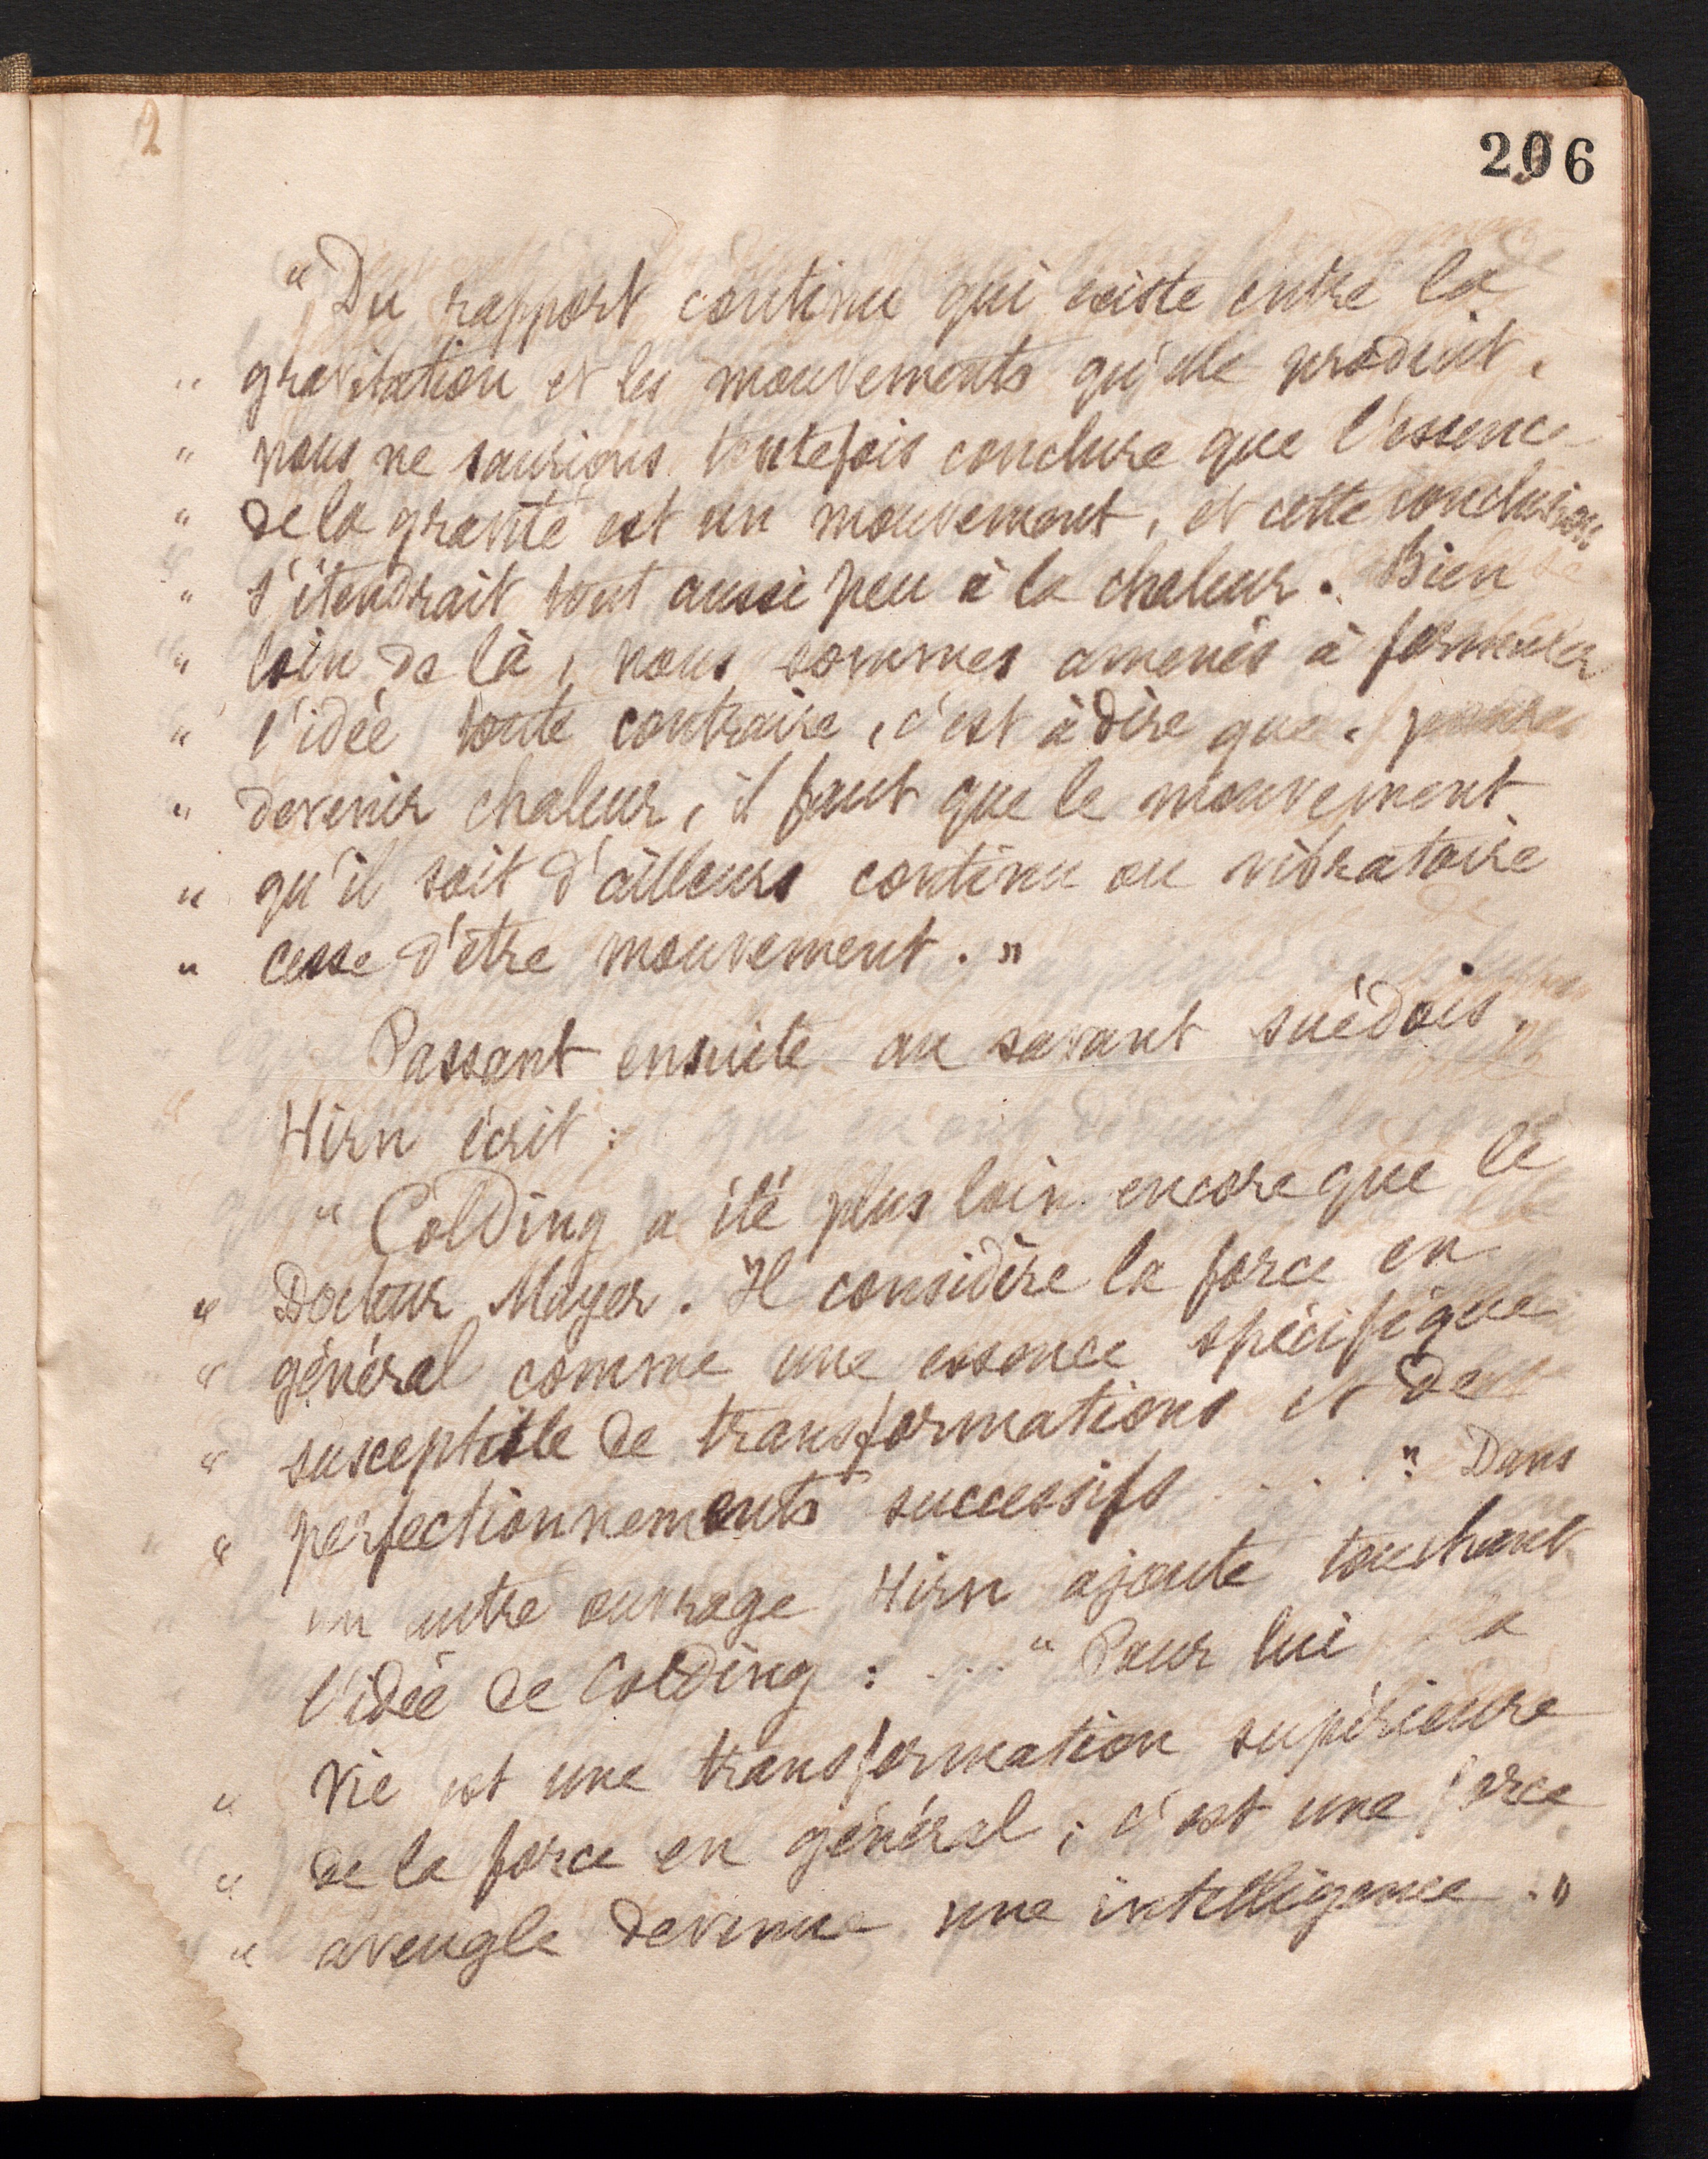 2
206
“ Du rapport continu qui existe entre la
“ gravitation et les mouvements qu'elle produit,
“ nous ne saurions toutefois conclure que l'essence
“ de la gravité est un mouvement, et cette conclusion
“ s'étendrait tout aussi peu à la chaleur. Bien
“ loin de là, nous sommes amenés à formuler
“ l'idée toute contraire, c'est à dire que, pour
“ devenir chaleur, il faut que le mouvement
“ qu'il soit d'ailleurs continu ou vibratoire
“ cesse d'être mouvement. „
Passant ensuite au savant suédois,
Hirn écrit :
“ Colding a été plus loin encore que le
“ Docteur Mayer. Il considère la force en
“ général comme une essence spécifique
“ susceptible de transformations et de
“ perfectionnements successifs . . . . " Dans
un autre ouvrage Hirn ajoute touchant
l'idée de Colding : . . . “ Pour lui la
“ vie est une transformation supérieure
“ de la force en général ; c'est une force
“ aveugle devenue une intelligence. „